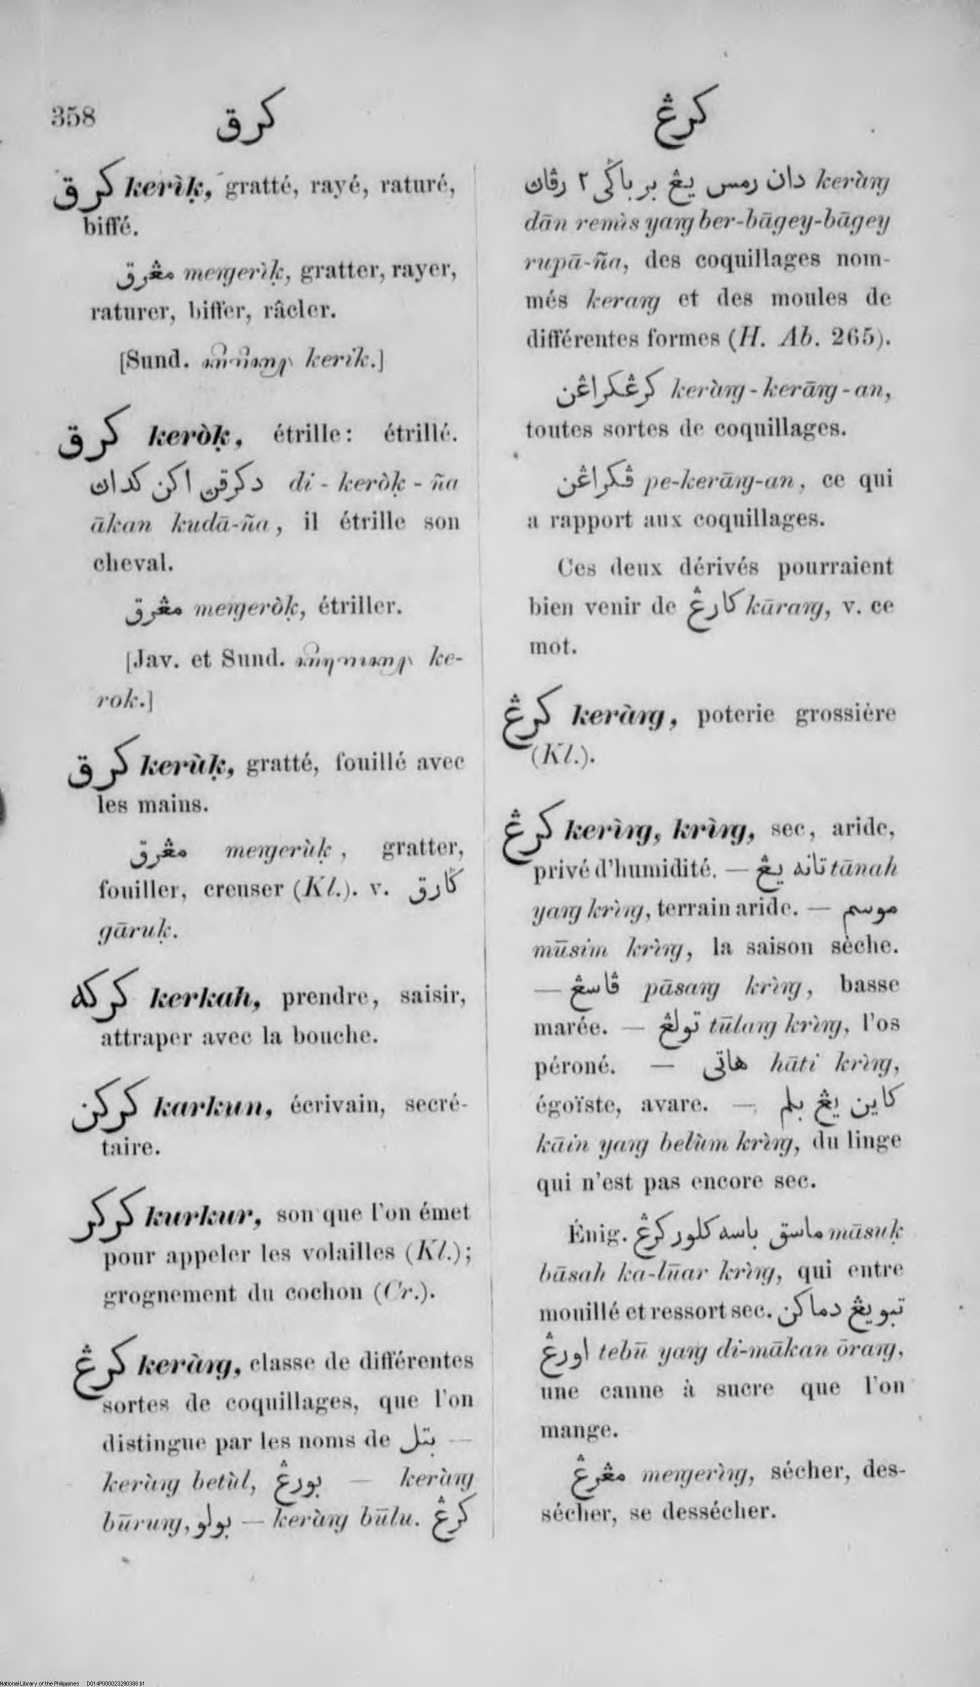 358
كرق
كرڠ
كرق kerìḳ, gratté, rayé, raturé,
biffé.
مڠرق meŋgerìḳ, gratter, rayer,
raturer, biffer, râcler.
[Sund. kerik.]
كرق keròḳ, étrille: étrillé.
دكرقن اكن كدان di-keròḳ-ña
ākan kudā-ña, il étrille son
cheval.
مڠرق meŋgeròḳ, étriller.
[Jav. et Sund. ke-
rok.]
كرق kerùḳ, gratté, fouillé avec
les mains.
مڠرق meŋgerùḳ, gratter,
fouiller, creuser (Kl.). v. ݢارق
gāruḳ.
كركه kerkah, prendre, saisir,
attraper avec la bouche.
كركن karkun, écrivain, secré-
taire.
كركر kurkur, son que l'on émet
pour appeler les volailles (Kl.);
grognement du cochon (Cr.).
كرڠ keràŋg, classe de différentes
sortes de coquillages, que l'on
distingue par les noms de بتل —
keràŋg betùl, بورڠ — keràŋg
būruŋg, بولو — keràŋg būlu. كرڠ
دان رمس يڠ بر باݢى ٢ رڤان keràŋg
dān remìs yaŋg ber-bāgey-bāgey
rupā-ña, des coquillages nom-
més keraŋg et des moules de
différentes formes (H. Ab. 265).
كرڠكراڠن keràŋg-kerāŋg-an,
toutes sortes de coquillages.
ڤكراڠن pe-kerāŋg-an, ce qui
a rapport aux coquillages.
Ces deux dérivés pourraient
bien venir de كارڠ kāraŋg, v. ce
mot.
كرڠ keràŋg, poterie grossière
(Kl.).
كرڠ kerìŋg, krìŋg, sec, aride,
privé d'humidité. — تانه يڠ tānah
yaŋg krìŋg, terrain aride. — موسم
mūsim krìŋg, la saison sèche.
— ڤاسڠ pāsaŋg krìŋg, basse
marée. — تولڠ tūlaŋg krìŋg, l'os
péroné. — هاتى hāti krìŋg,
égoïste, avare. — كاين يڠ بلم
kāin yaŋg belùm krìŋg, du linge
qui n'est pas encore sec.
Énig. ماسق باسه كلور كرڠ māsuḳ
bāsah ka-lūar krìŋg, qui entre
mouillé et ressort sec. تبو يڠ دماكن
اورڠ tebū yaŋg di-mākan ōraŋg,
une canne à sucre que l'on
mange.
مڠرڠ meŋgerìŋg, sécher, des-
sécher, se dessécher.
National Library of the Philippines